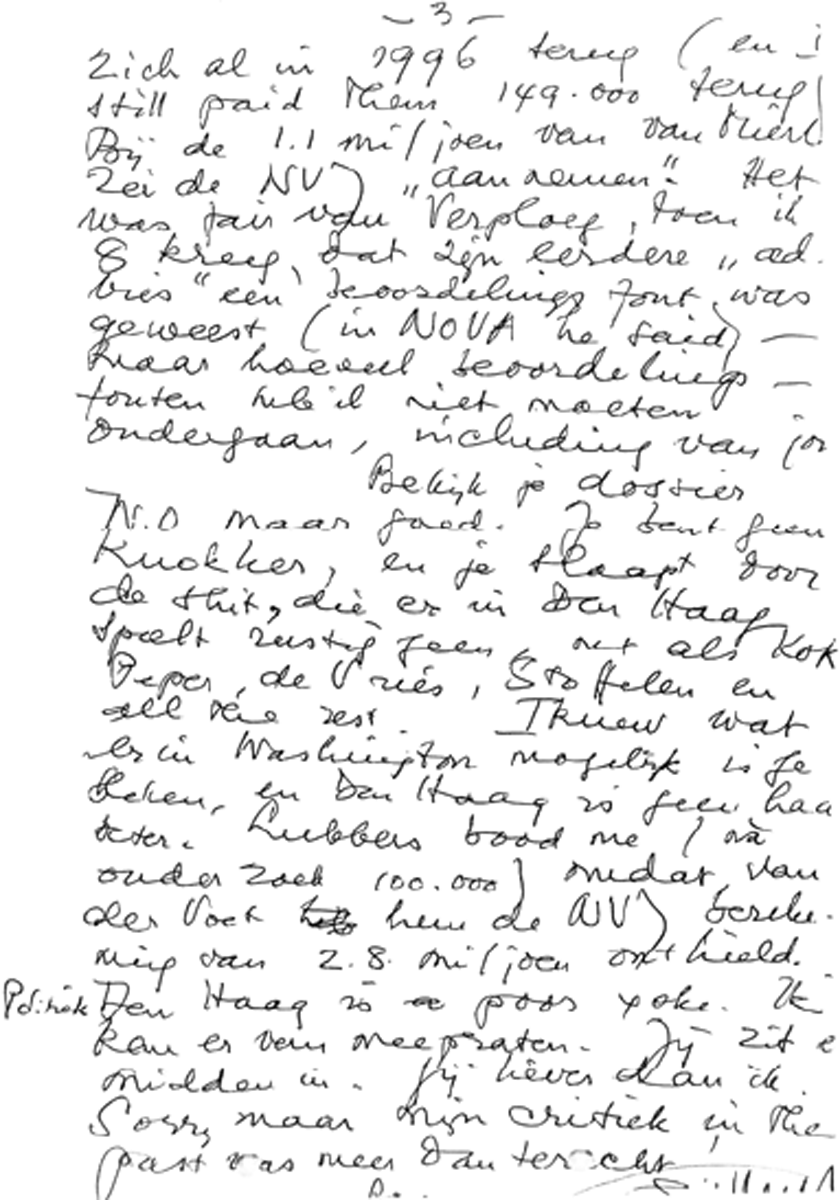 - 3 -
zich al in 1996 terug (en i
still paid them 149.000 terug)
Bij de 1.1 miljoen van van Mierl
zei de NVJ „aannemen". Het
was fair van Verploeg, toen ik
8 kreeg, dat zijn eerdere „ad-
vies" een beoordelings fout was
geweest (in NOVA he said) —
maar hoeveel beoordelings —
fouten heb ik niet moeten
ondergaan, including van jou
Bekijk je dossier
N.O maar goed. Je bent geen
Knokker, en je slaapt door
de shit, die er in Den Haag
speelt rustig heen, net als Kok
Peper, de Vries, Stoffelen en
all the rest. I knew wat
er in Washington mogelijk is ge
bleken, en Den Haag is geen haa
beter. Lubbers bood me (na
onderzoek 100.000) omdat van
der Voet hem de NVJ bereke-
ning van 2.8 miljoen onthield.
Politiek Den Haag is a poor joke. Ik
kan er van meepraten. Jij zit e
midden in. Jij liever dan ik.
Sorry, maar mijn critiek in the
past was meer dan terecht